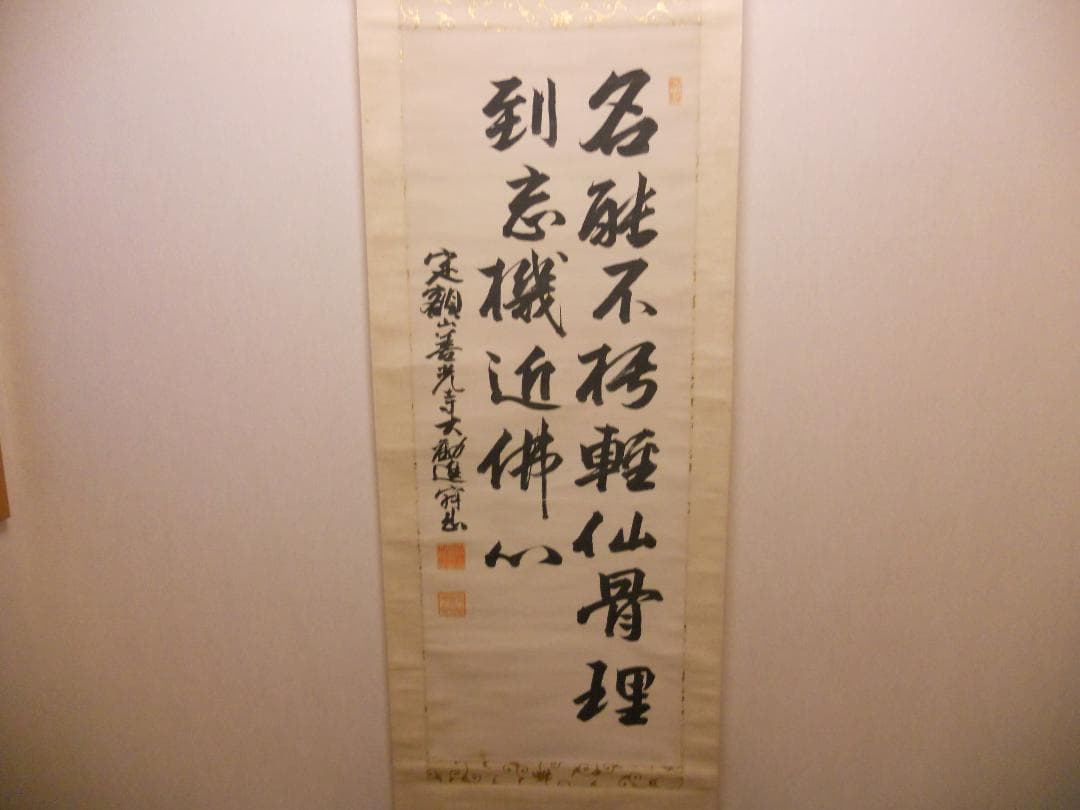 名能不朽輕仙骨理
到忘機近佛心
定額山善光寺大勸進